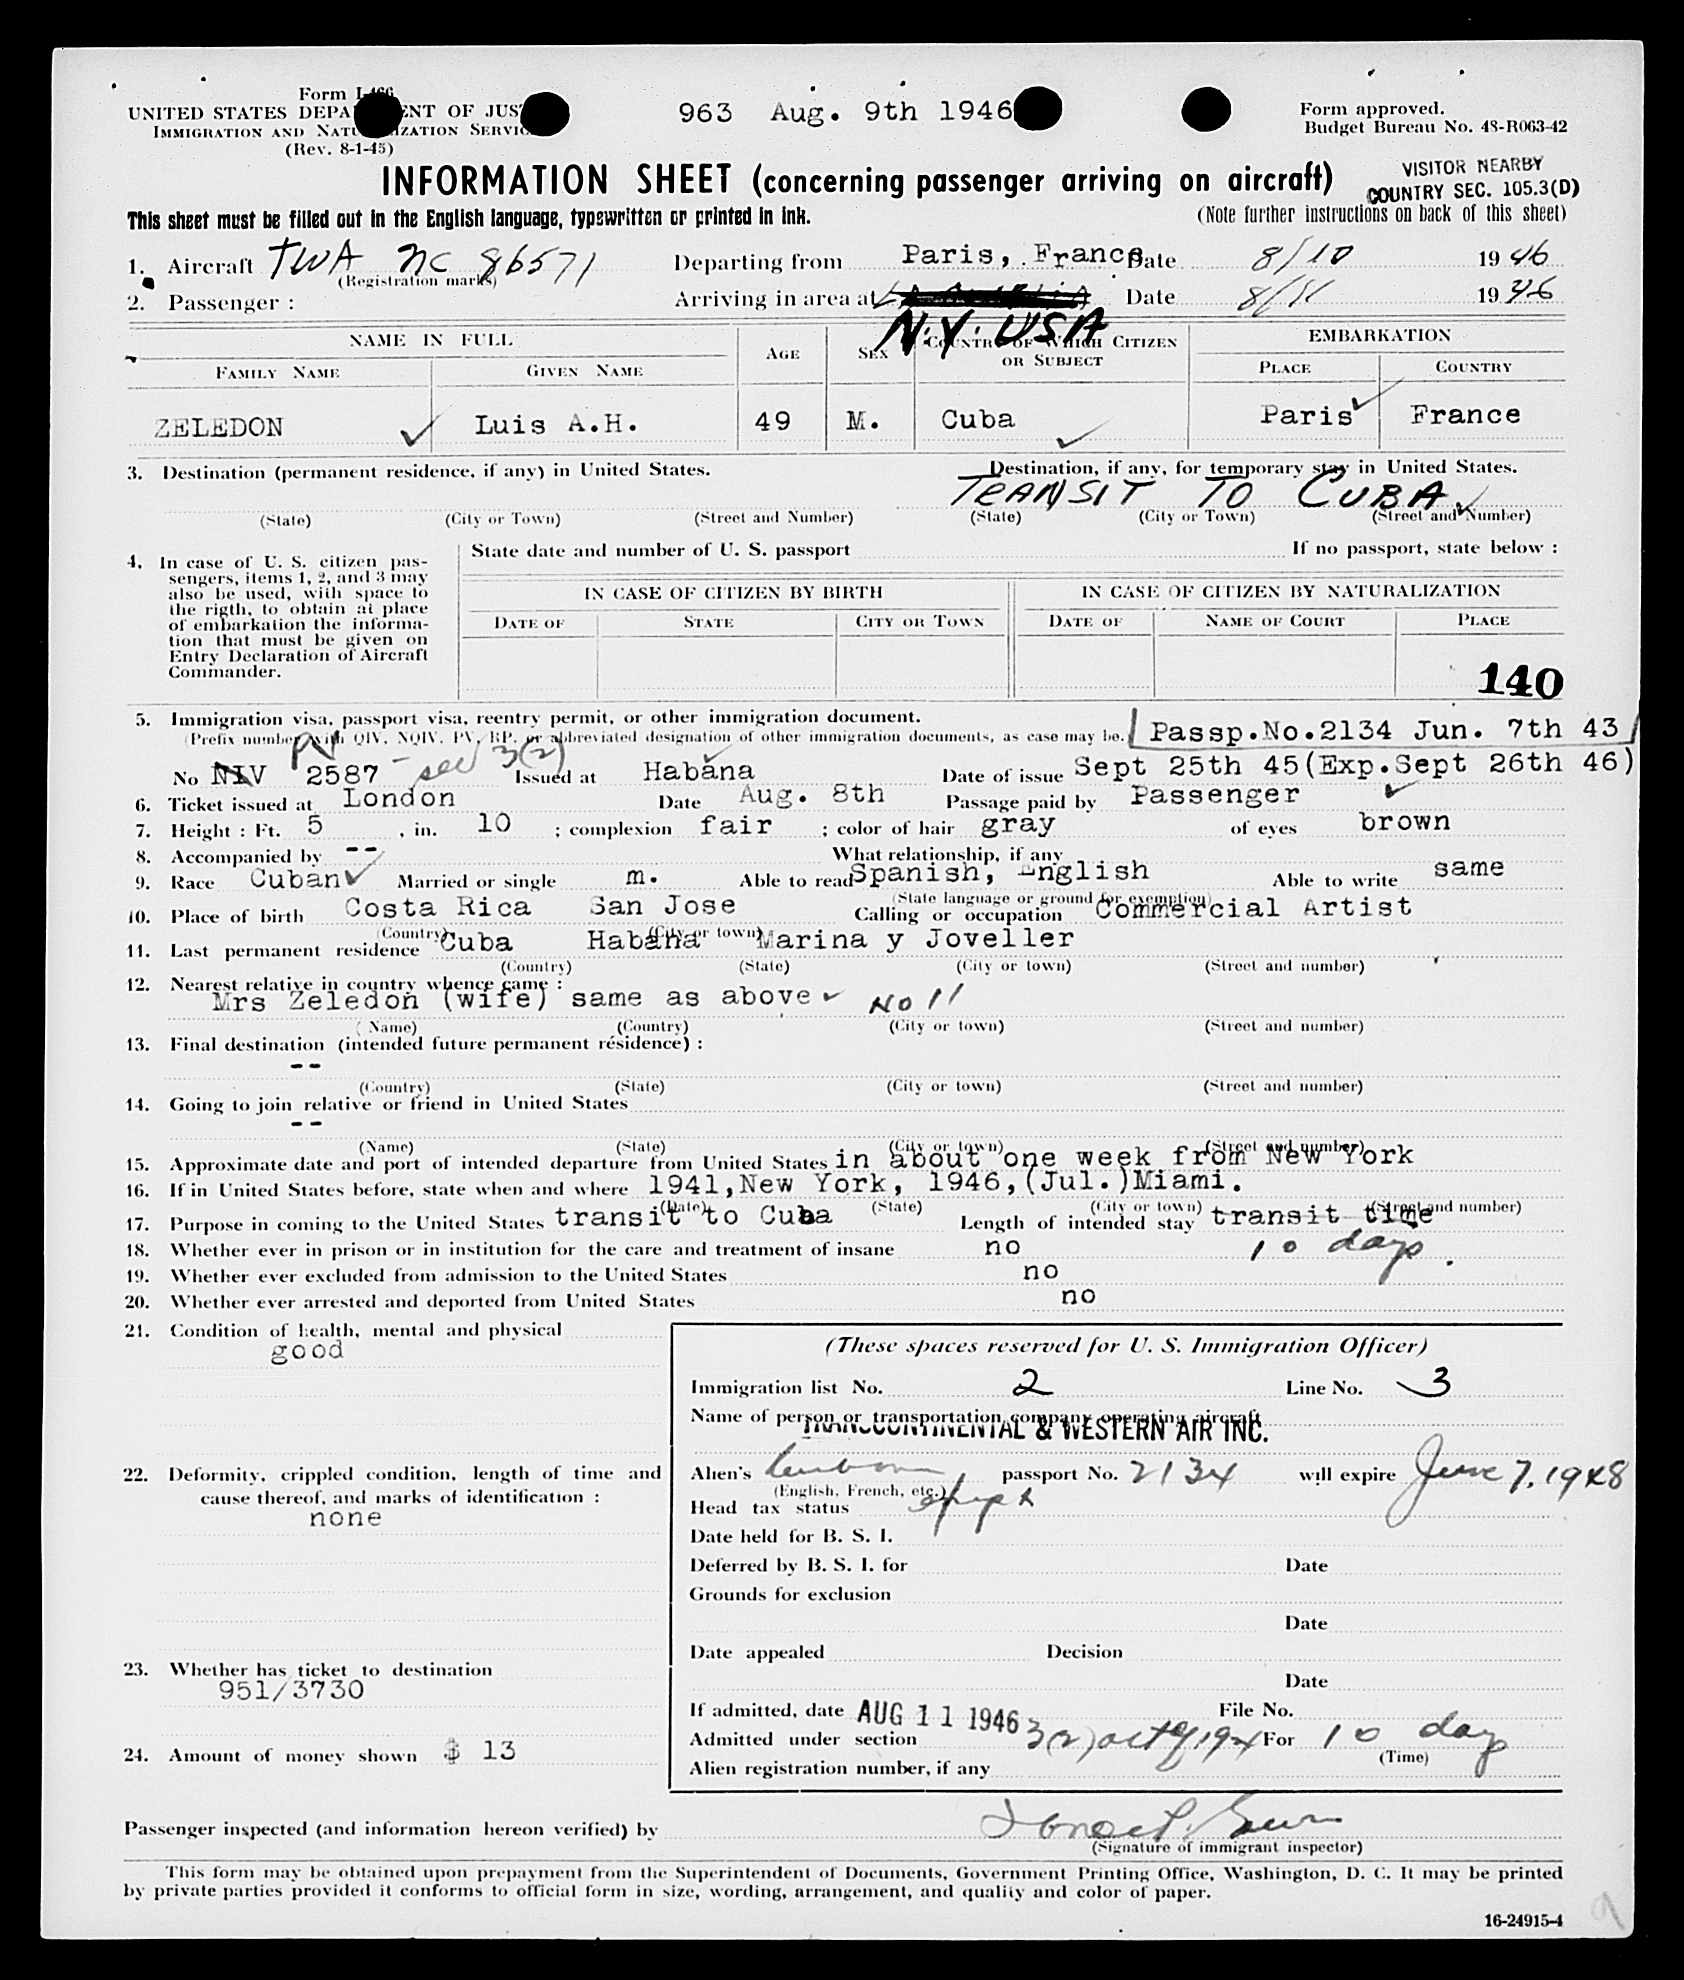 Form I-466
UNITED STATES DEPARTMENT OF JUSTICE
IMMIGRATION AND NATURALIZATION SERVICE
(Rev. 8-1-45)
963 Aug. 9th 1946
Form approved.
Budget Bureau No. 43-R063-42
INFORMATION SHEET (concerning passenger arriving on aircraft)
VISITOR NEARBY
COUNTRY SEC. 105.3(D)
This sheet must be filled out in the English language, typewritten or printed in ink.
(Note further instructions on back of this sheet)
1. Aircraft TWA NC 86571 Departing from Paris, France Date 8/10 1946
(Registration marks)
2. Passenger : Arriving in area at Date 8/11 1946
N.Y. USA
NAME IN FULL AGE SEX COUNTRY OF WHICH CITIZEN OR SUBJECT EMBARKATION
FAMILY NAME GIVEN NAME PLACE COUNTRY
ZELEDON Luis A.H. 49 M. Cuba Paris France
3. Destination (permanent residence, if any) in United States. Destination, if any, for temporary stay in United States.
TRANSIT TO CUBA
(State) (City or Town) (Street and Number) (State) (City or Town) (Street and Number)
4. In case of U. S. citizen pas-
sengers, items 1, 2, and 3 may
also be used, with space to
the rigth, to obtain at place
of embarkation the informa-
tion that must be given on
Entry Declaration of Aircraft
Commander.
State date and number of U. S. passport If no passport, state below :
IN CASE OF CITIZEN BY BIRTH IN CASE OF CITIZEN BY NATURALIZATION
DATE OF STATE CITY OR TOWN DATE OF NAME OF COURT PLACE
140
5. Immigration visa, passport visa, reentry permit, or other immigration document.
(Prefix number with QIV, NQIV, PV, RP, or abbreviated designation of other immigration documents, as case may be. Passp.No.2134 Jun. 7th 43
No NIV PV 2587 - sec 3(2) Issued at Habana Date of issue Sept 25th 45(Exp.Sept 26th 46)
6. Ticket issued at London Date Aug. 8th Passage paid by Passenger
7. Height : Ft. 5 , in. 10 ; complexion fair ; color of hair gray of eyes brown
8. Accompanied by -- What relationship, if any
9. Race Cuban Married or single m. Able to read Spanish, English Able to write same
(State language or ground for exemption)
10. Place of birth Costa Rica San Jose Calling or occupation Commercial Artist
(Country) (City or town)
11. Last permanent residence Cuba Habana Marina y Joveller
(Country) (State) (City or town) (Street and number)
12. Nearest relative in country whence came :
Mrs Zeledon (wife) same as above No 11
(Name) (Country) (City or town) (Street and number)
13. Final destination (intended future permanent résidence) :
--
(Country) (State) (City or town) (Street and number)
14. Going to join relative or friend in United States
--
(Name) (State) (City or town) (Street and number)
15. Approximate date and port of intended departure from United States in about one week from New York
16. If in United States before, state when and where 1941,New York, 1946,(Jul.)Miami.
(Date) (State) (City or town) (Street and number)
17. Purpose in coming to the United States transit to Cuba Length of intended stay transit time
18. Whether ever in prison or in institution for the care and treatment of insane no 10 days.
19. Whether ever excluded from admission to the United States no
20. Whether ever arrested and deported from United States no
21. Condition of health, mental and physical
good
(These spaces reserved for U. S. Immigration Officer)
Immigration list No. 2 Line No. 3
Name of person or transportation company operating aircraft
TRANSCONTINENTAL & WESTERN AIR INC.
22. Deformity, crippled condition, length of time and
cause thereof, and marks of identification :
none
Alien's passport No. 2134 will expire June 7, 1948
(English, French, etc.)
Head tax status
Date held for B. S. I.
Deferred by B. S. I. for Date
Grounds for exclusion
Date
Date appealed Decision
23. Whether has ticket to destination
951/3730
Date
If admitted, date AUG 11 1946 File No.
Admitted under section 3(2) act of 1924 For 10 days
(Time)
24. Amount of money shown $ 13
Alien registration number, if any
Passenger inspected (and information hereon verified) by
(Signature of immigrant inspector)
This form may be obtained upon prepayment from the Superintendent of Documents, Government Printing Office, Washington, D. C. It may be printed
by private parties provided it conforms to official form in size, wording, arrangement, and quality and color of paper.
16-24915-4
9